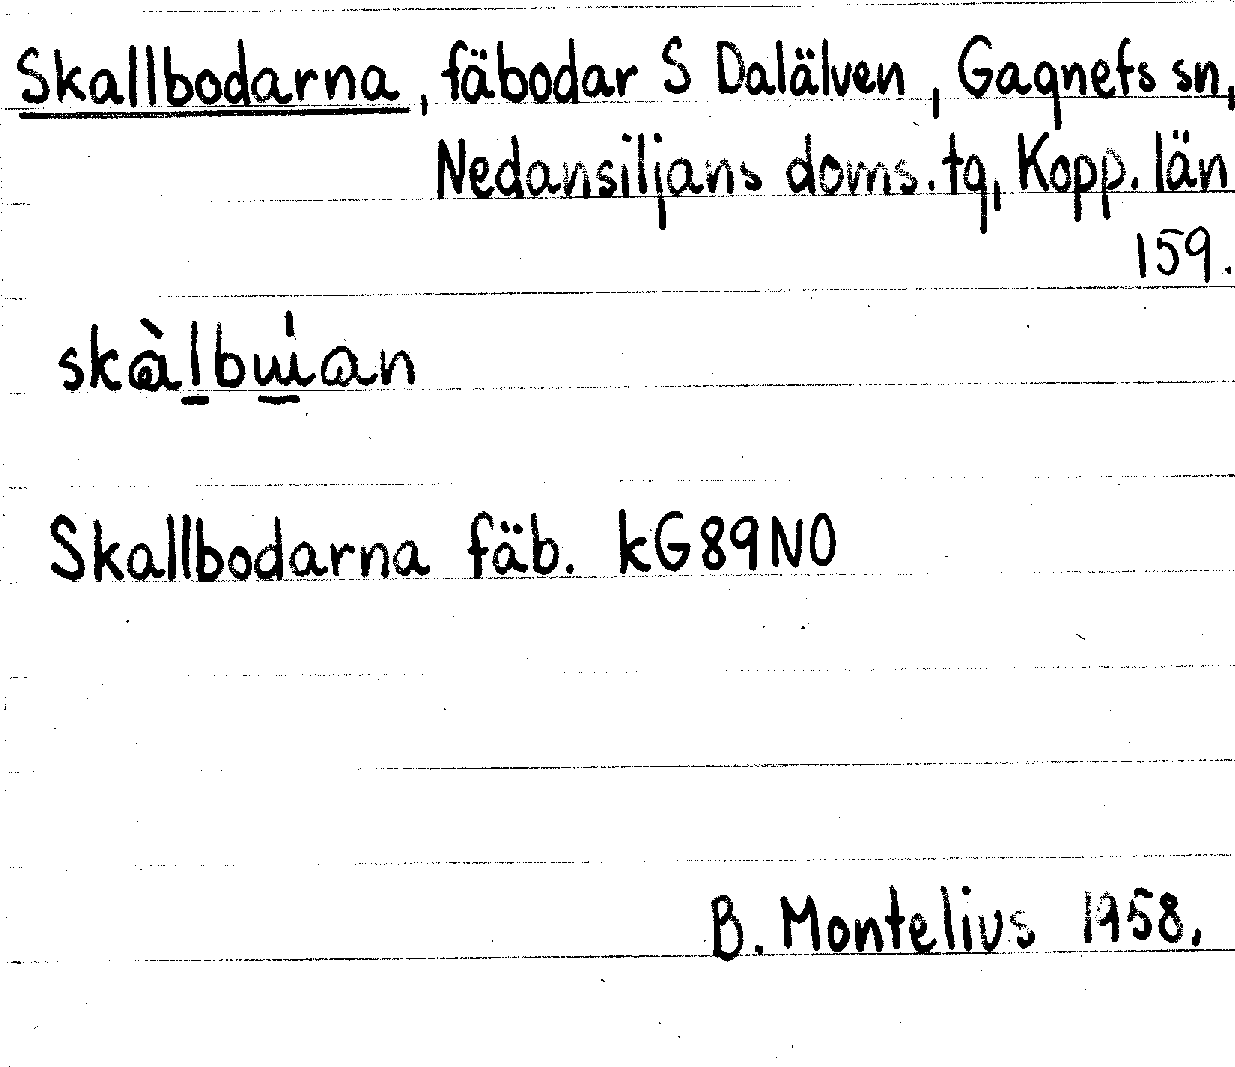 Skallbodarna, fäbodar S Dalälven, Gagnefs sn,
Nedansiljans doms. tg, Kopp. län
159.
Skallbodarna fäb. kG89NO
B. Montelius 1958.